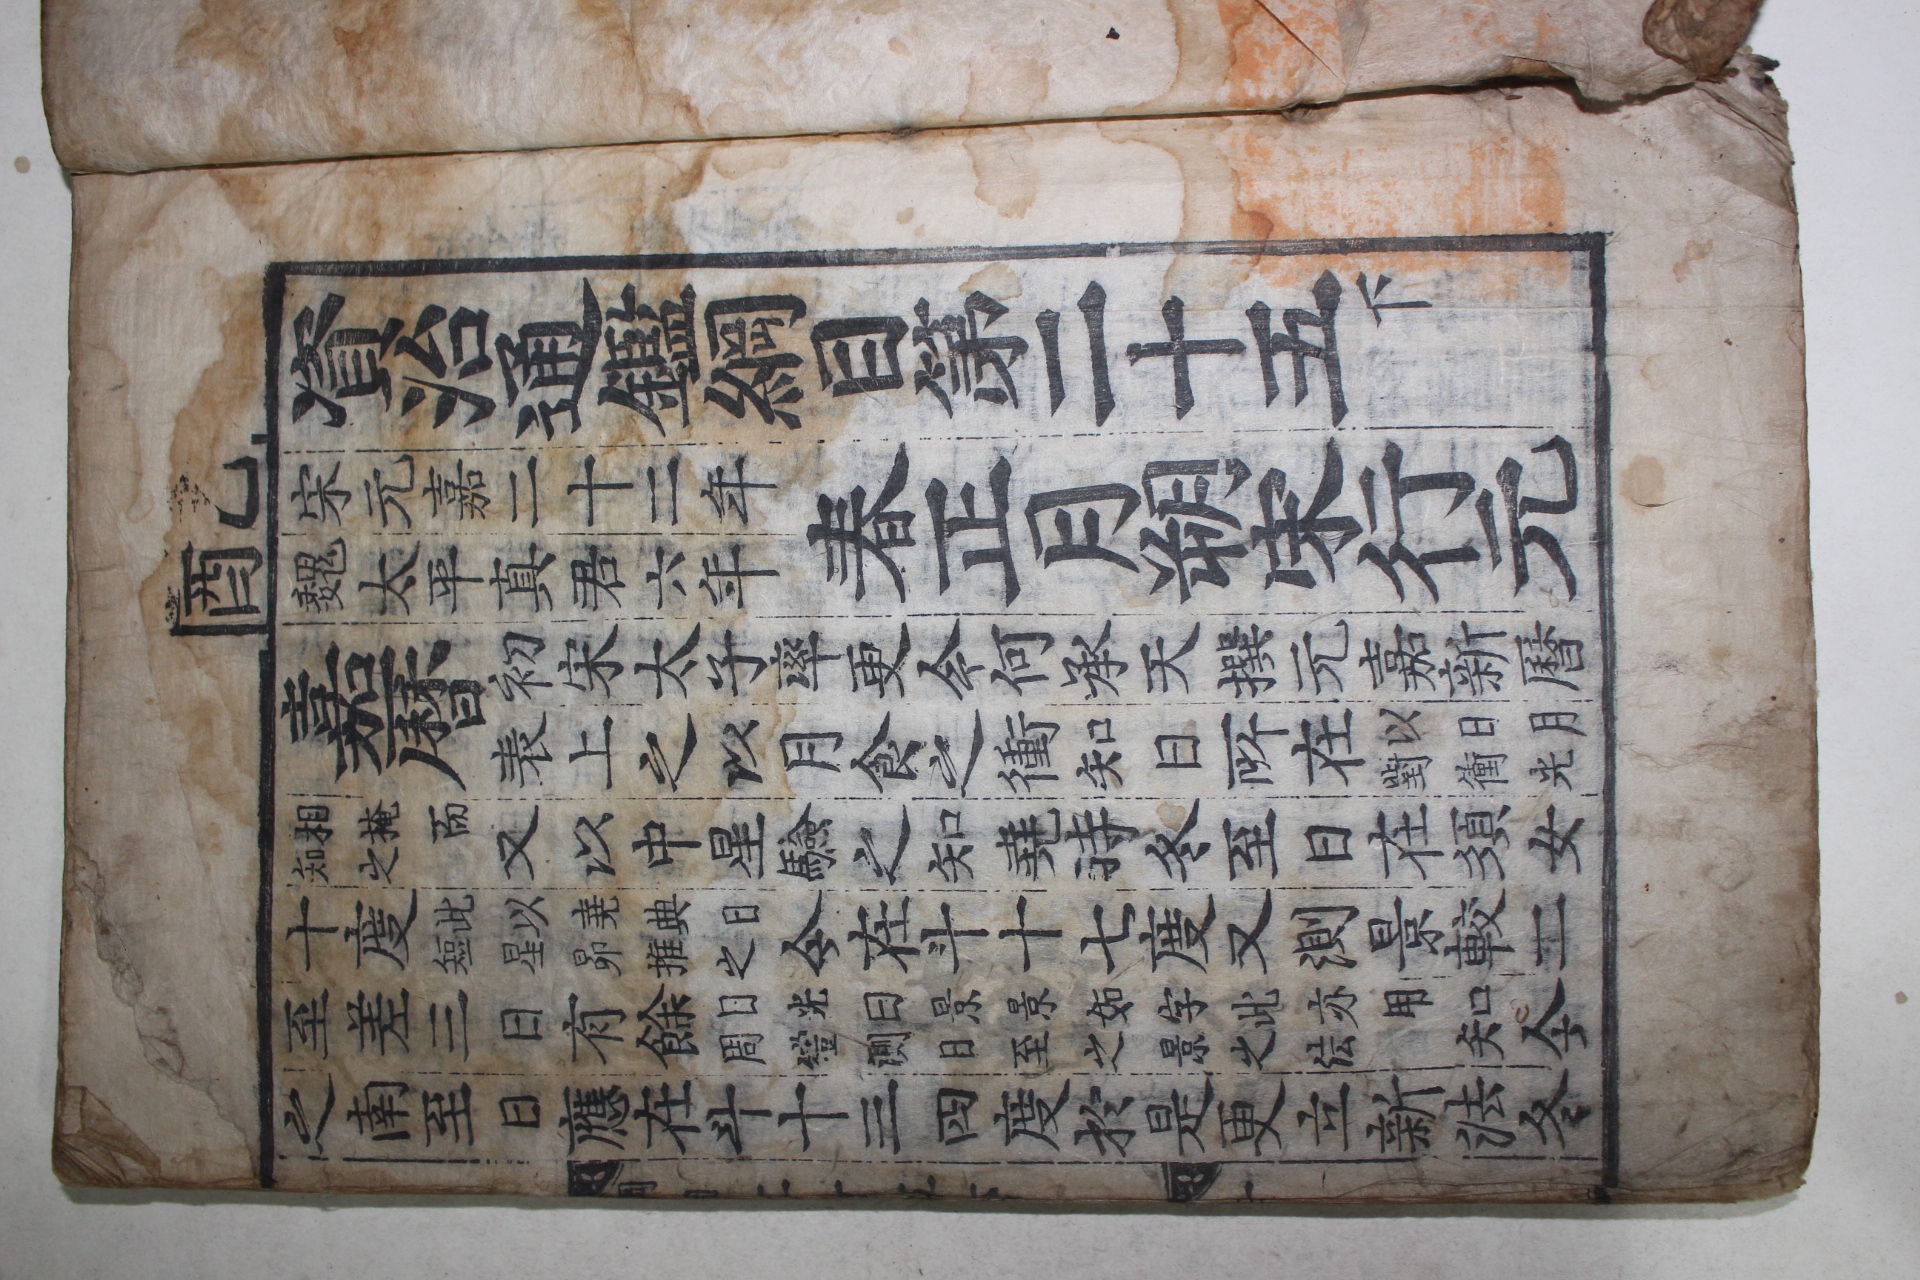 乙酉
資治通鑑綱目第二十五下
宋元嘉二十二年
魏太平真君六年
春正月朔宋行元
嘉曆
初宋太子率更令何承天撰元嘉新曆
表上之以月食之衝知日所在以日月對衝光
相掩而知之又以中星驗之知堯時冬至日在須女
十度此以堯典日短星昴推之今在斗十七度又測景較二
至差三日有餘日光曰景景如字此亦用周禮測日至之景之法知今
之南至日應在斗十三四度於是更立新法冬